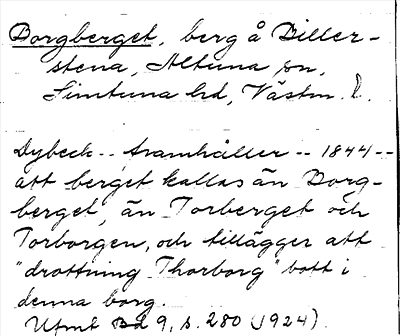 Borgberget, berg å Biller-
stena, Altuna sn,
Simtuna hd, Västm. l.
Dybeck -- framhåller -- 1844 --
att berget kallas än Borg-
berget, än Torberget och
Torborgen, och tillägger att
"drottning Thorborg" bott i
denna borg.
Ufmt Bd 9, s. 280 (1924).